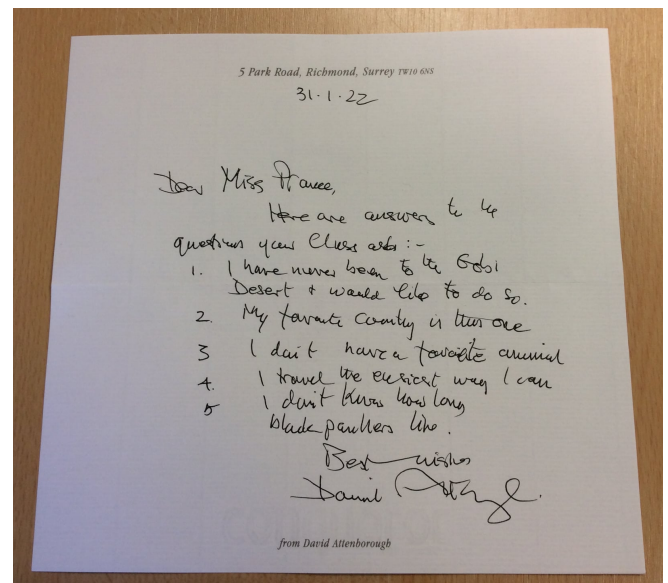 5 Park Road, Richmond, Surrey TW10 6NS
31.1.22
Dear Miss
Here are answers to the
questions your Class asks :-
1. I have never been to the Gobi
Desert + would like to do so.
2. My favourite Country is this one
3 I don't have a favourite animal
4. I travel the easiest way I can
5 I don't know how long
black panthers live.
Best wishes
David Attenborough.
from David Attenborough